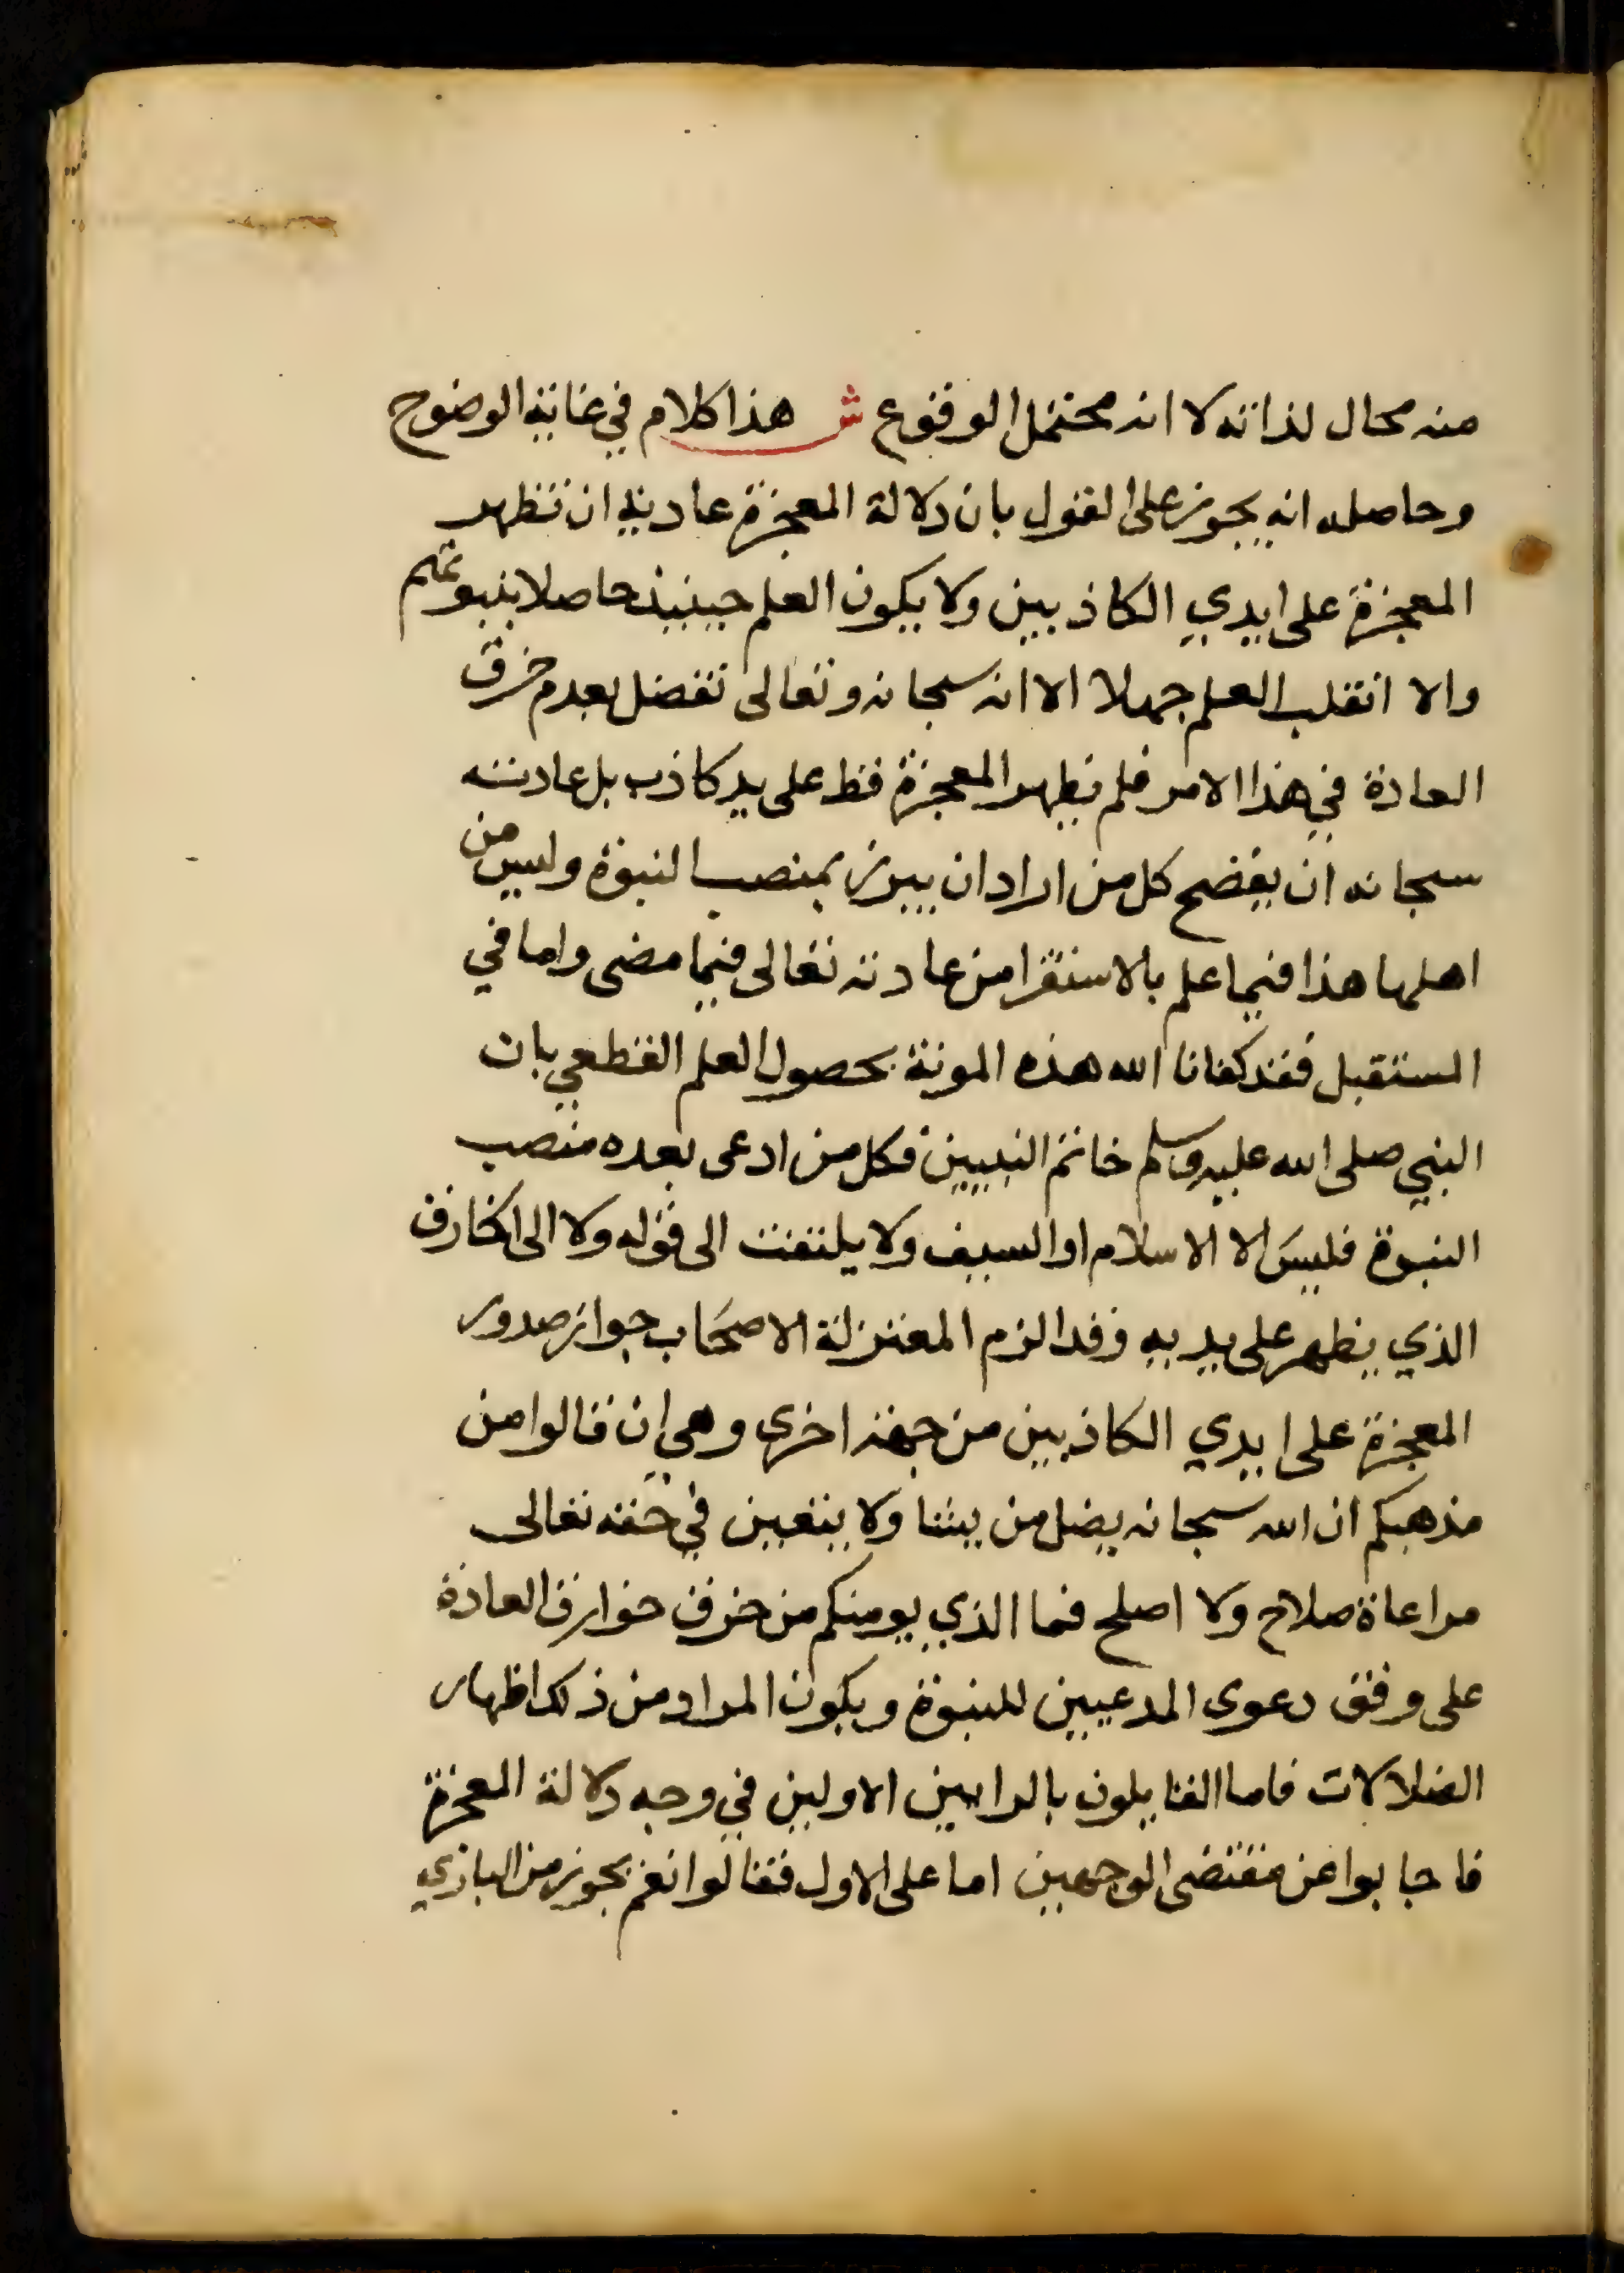 منه محال لذاته لا انه محتمل الوقوع ش هذا كلام في غاية الوضوح
وحاصله انه يجوز على القول بان دلالة المعجزة عادية ان تظهر
المعجزة على ايدي الكاذبين ولا يكون العلم حينيذ حاصلا بنبوتهم
والا انقلب العلم جهلا الا انه سبحانه وتعالى تفضل بعدم خرق
العادة في هذا الامر فلم يظهر المعجزة قط على يد كاذب بل عادته
سبحانه ان يفضح كل من اراد ان يبرز بمنصب النبوة وليس من
اهلها هذا فيما علم بالاستقرا من عادته تعالى فيما مضى واما في
المستقبل فقد كفانا الله هذه المونة بحصول العلم القطعي بان
النبي صلى الله عليه وسلم خاتم النبيين فكل من ادعى بعده منصب
النبوة فليس الا الاسلام او السيف ولا يلتفت الى قوله ولا الى الخارق
الذي يظهر على يديه وقد الزم المعتزلة الاصحاب جواز صدور
المعجزة على ايدي الكاذبين من جهة اخرى وهي ان قالوا من
مذهبكم ان الله سبحانه يضل من يشا ولا يتعين في حقه تعالى
مراعاة صلاح ولا اصلح فما الذي يومنكم من خرق خوارق العادة
على وفق دعوى المدعيين للنبوة ويكون المراد من ذلك اظهار
الضلالات فاما القايلون بالرايين الاولين في وجه دلالة المعجزة
فاجابوا عن مقتضى الوجهين اما على الاول فقالوا نعم يجوز من الباري